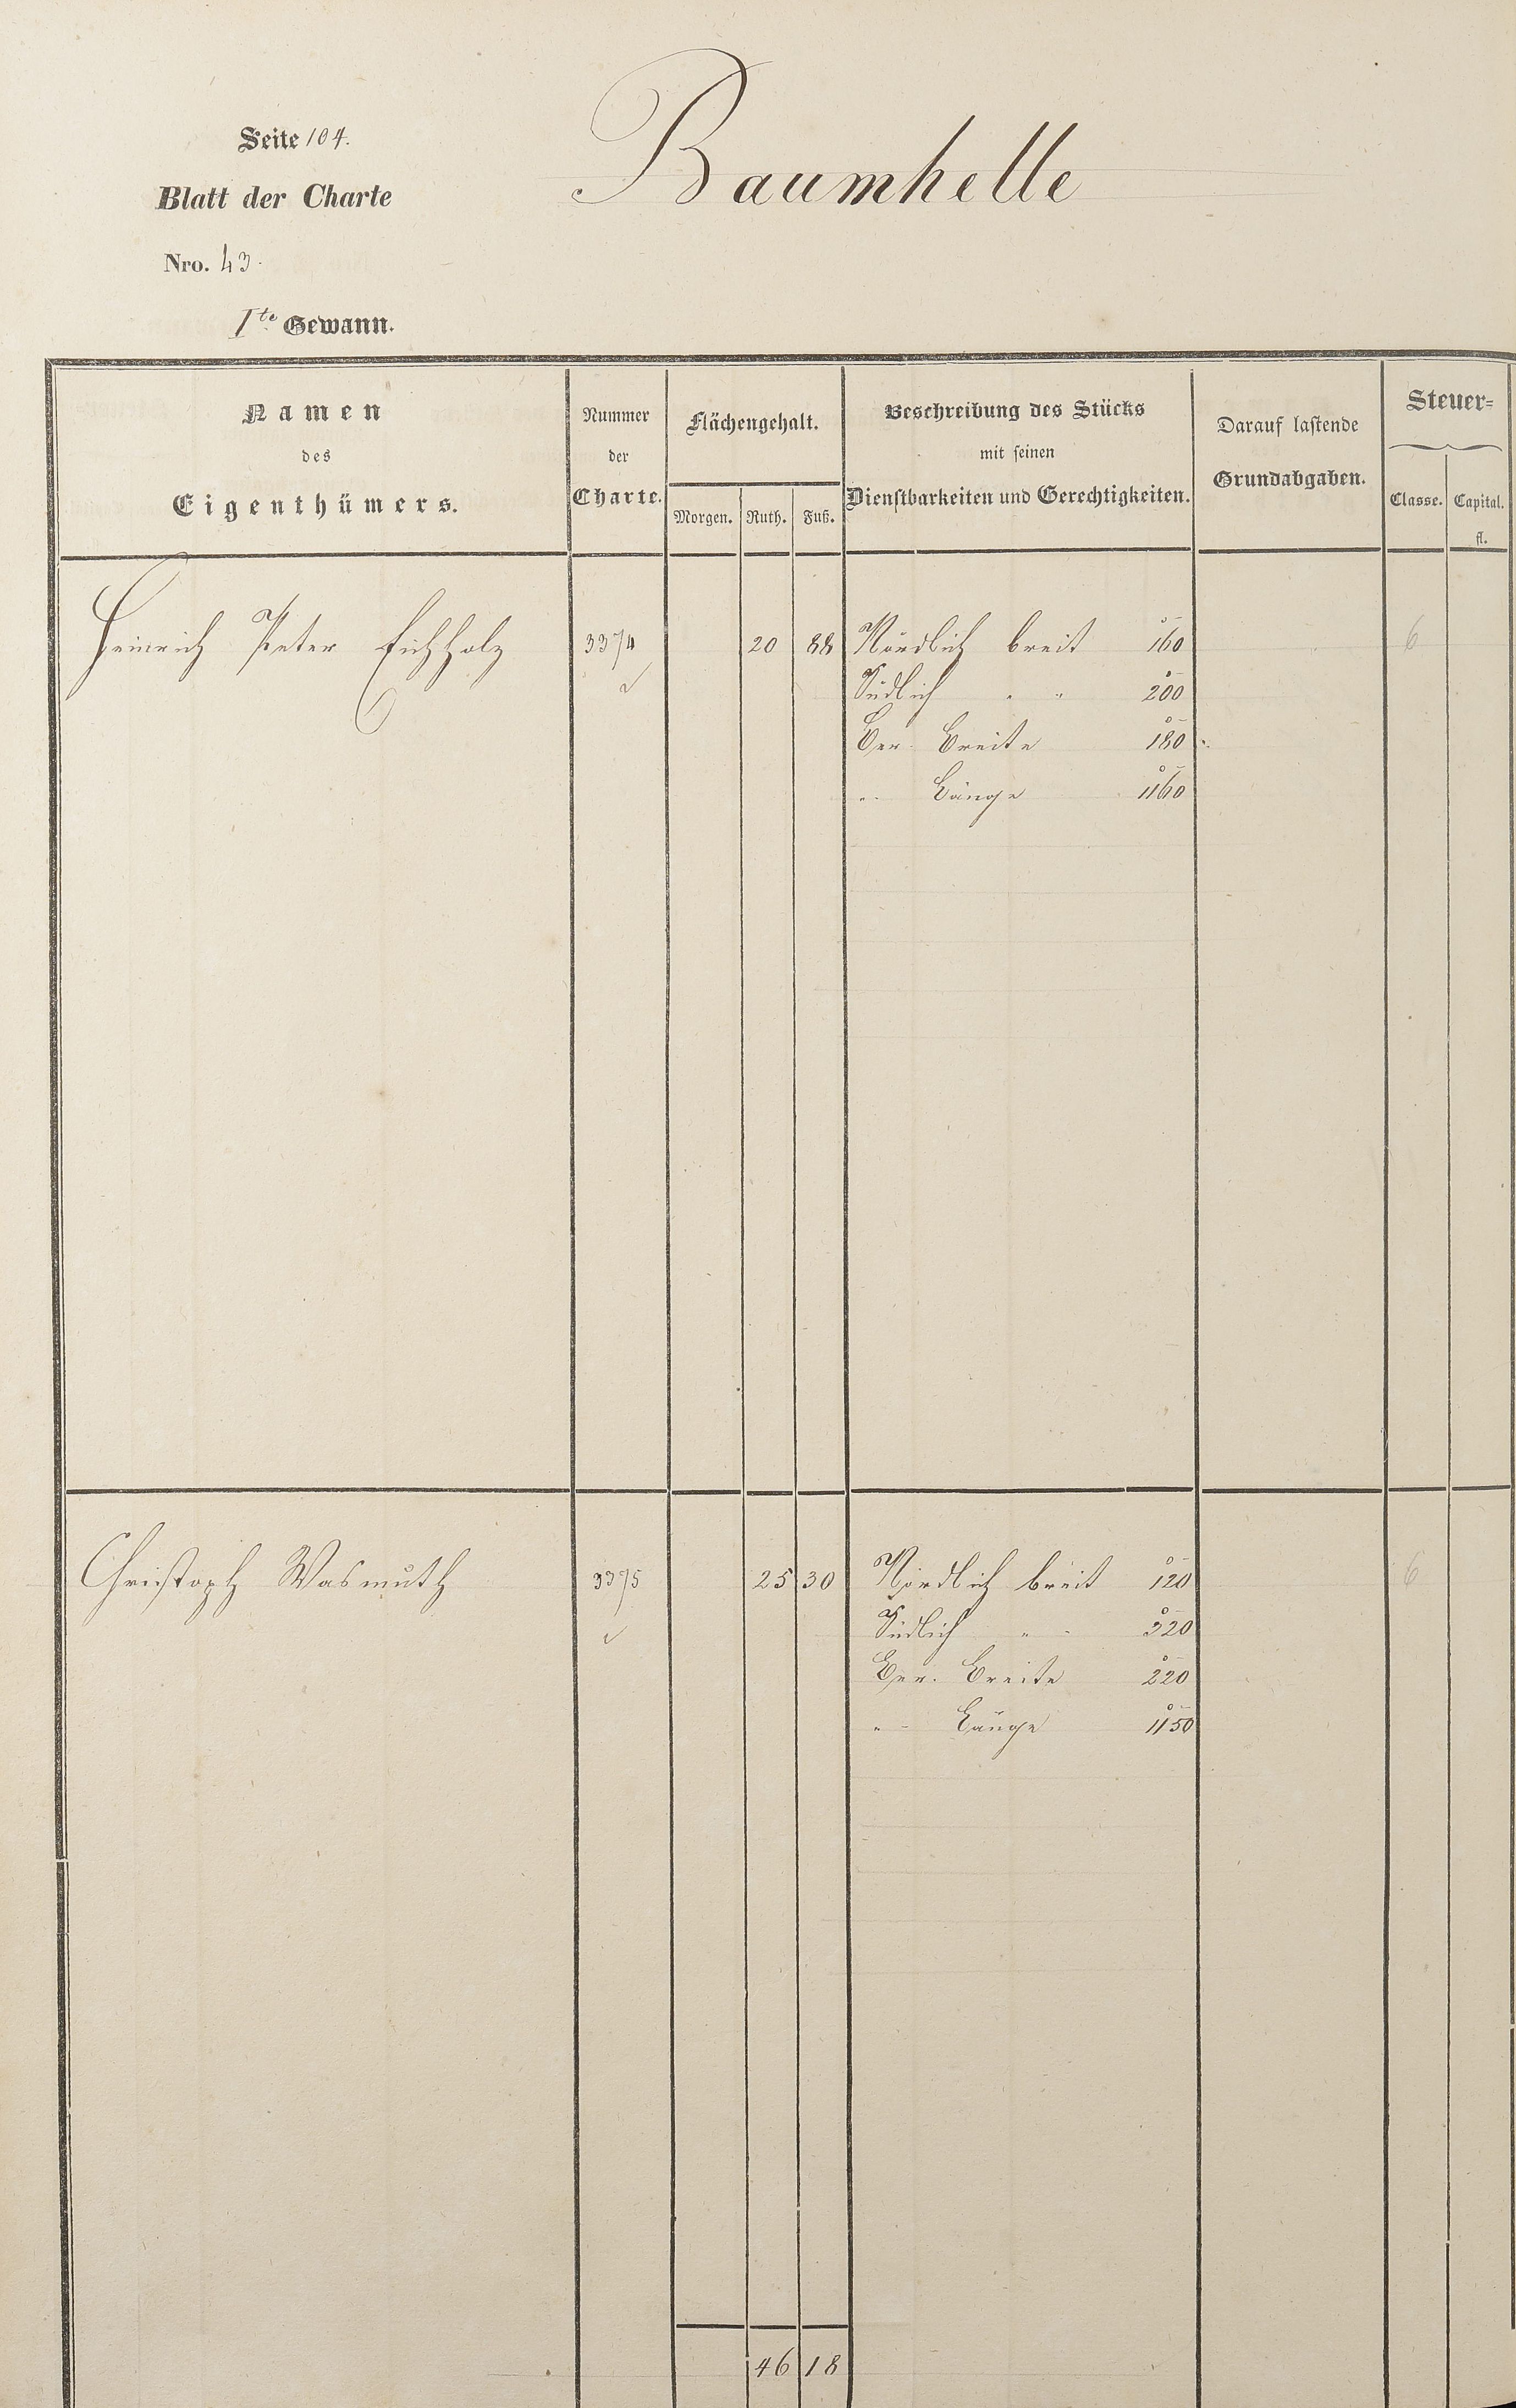 Seite 104.
Blatt der Charte
Nro. 43.
Baumhelle
I^te Gewann.
Namen
des
Eigenthümers.
Nummer
der
Charte.
Flächengehalt.
Morgen. Ruth. Fuß.
Beschreibung des Stücks
mit seinen
Dienstbarkeiten und Gerechtigkeiten.
Darauf lastende
Grundabgaben.
Steuer=
Classe. Capital.
fl.
Heinrich Peter Eichholz 3374 20 88 Nördlich breit 160 6
Südlich " " 200
Ber. Breite 180
" Länge 1160
Christoph Wasmuth 3375 25 30 Nördlich breit 120 6
Südlich " " 320
Ber. Breite 220
" Länge 1150
46 18